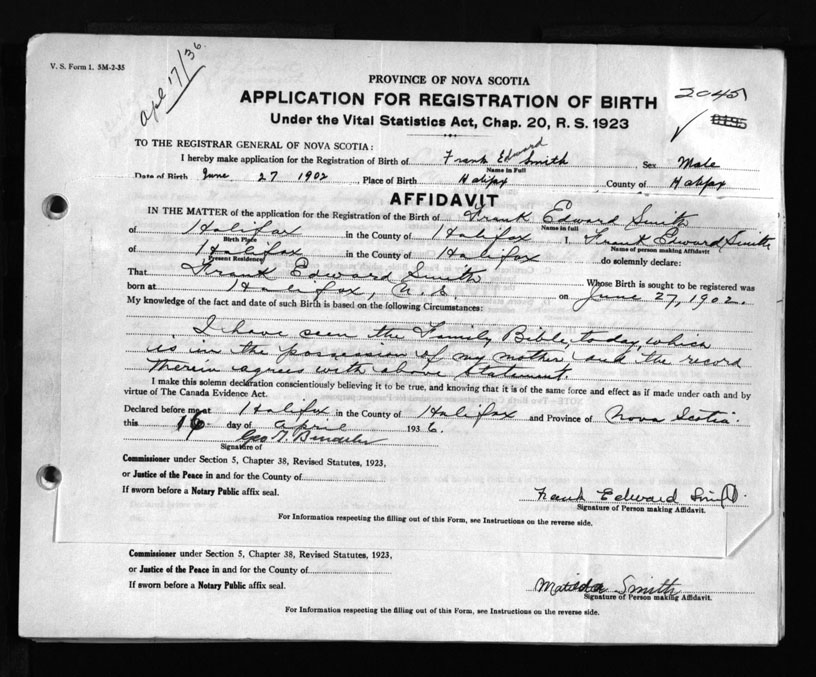 V. S. Form 1. 5M-2-35
Apl 17/36.
PROVINCE OF NOVA SCOTIA
APPLICATION FOR REGISTRATION OF BIRTH
2045
Under the Vital Statistics Act, Chap. 20, R. S. 1923
TO THE REGISTRAR GENERAL OF NOVA SCOTIA:
I hereby make application for the Registration of Birth of Frank Edward Smith Sex Male
Name in Full
Date of Birth June 27 1902, Place of Birth Halifax County of Halifax
AFFIDAVIT
IN THE MATTER of the application for the Registration of the Birth of Frank Edward Smith
Name in full
of Halifax in the County of Halifax I, Frank Edward Smith
Birth Place Name of person making Affidavit
of Halifax in the County of Halifax do solemnly declare:
Present Residence
That Frank Edward Smith Whose Birth is sought to be registered was
born at Halifax, N. S. on June 27, 1902.
My knowledge of the fact and date of such Birth is based on the following Circumstances:
I have seen the Family Bible, today, which
is in the possession of my mother and the record
therein agrees with above statement.
I make this solemn declaration conscientiously believing it to be true, and knowing that it is of the same force and effect as if made under oath and by
virtue of The Canada Evidence Act.
Declared before me at Halifax in the County of Halifax and Province of Nova Scotia.
this 16 day of April 1936.
Geo
Signature of
Commissioner under Section 5, Chapter 38, Revised Statutes, 1923,
or Justice of the Peace in and for the County of
If sworn before a Notary Public affix seal.
Frank Edward Smith.
Signature of Person making Affidavit.
For Information respecting the filling out of this Form, see Instructions on the reverse side.
Commissioner under Section 5, Chapter 38, Revised Statutes, 1923,
or Justice of the Peace in and for the County of
If sworn before a Notary Public affix seal.
Matilda Smith
Signature of Person making Affidavit.
For Information respecting the filling out of this Form, see Instructions on the reverse side.